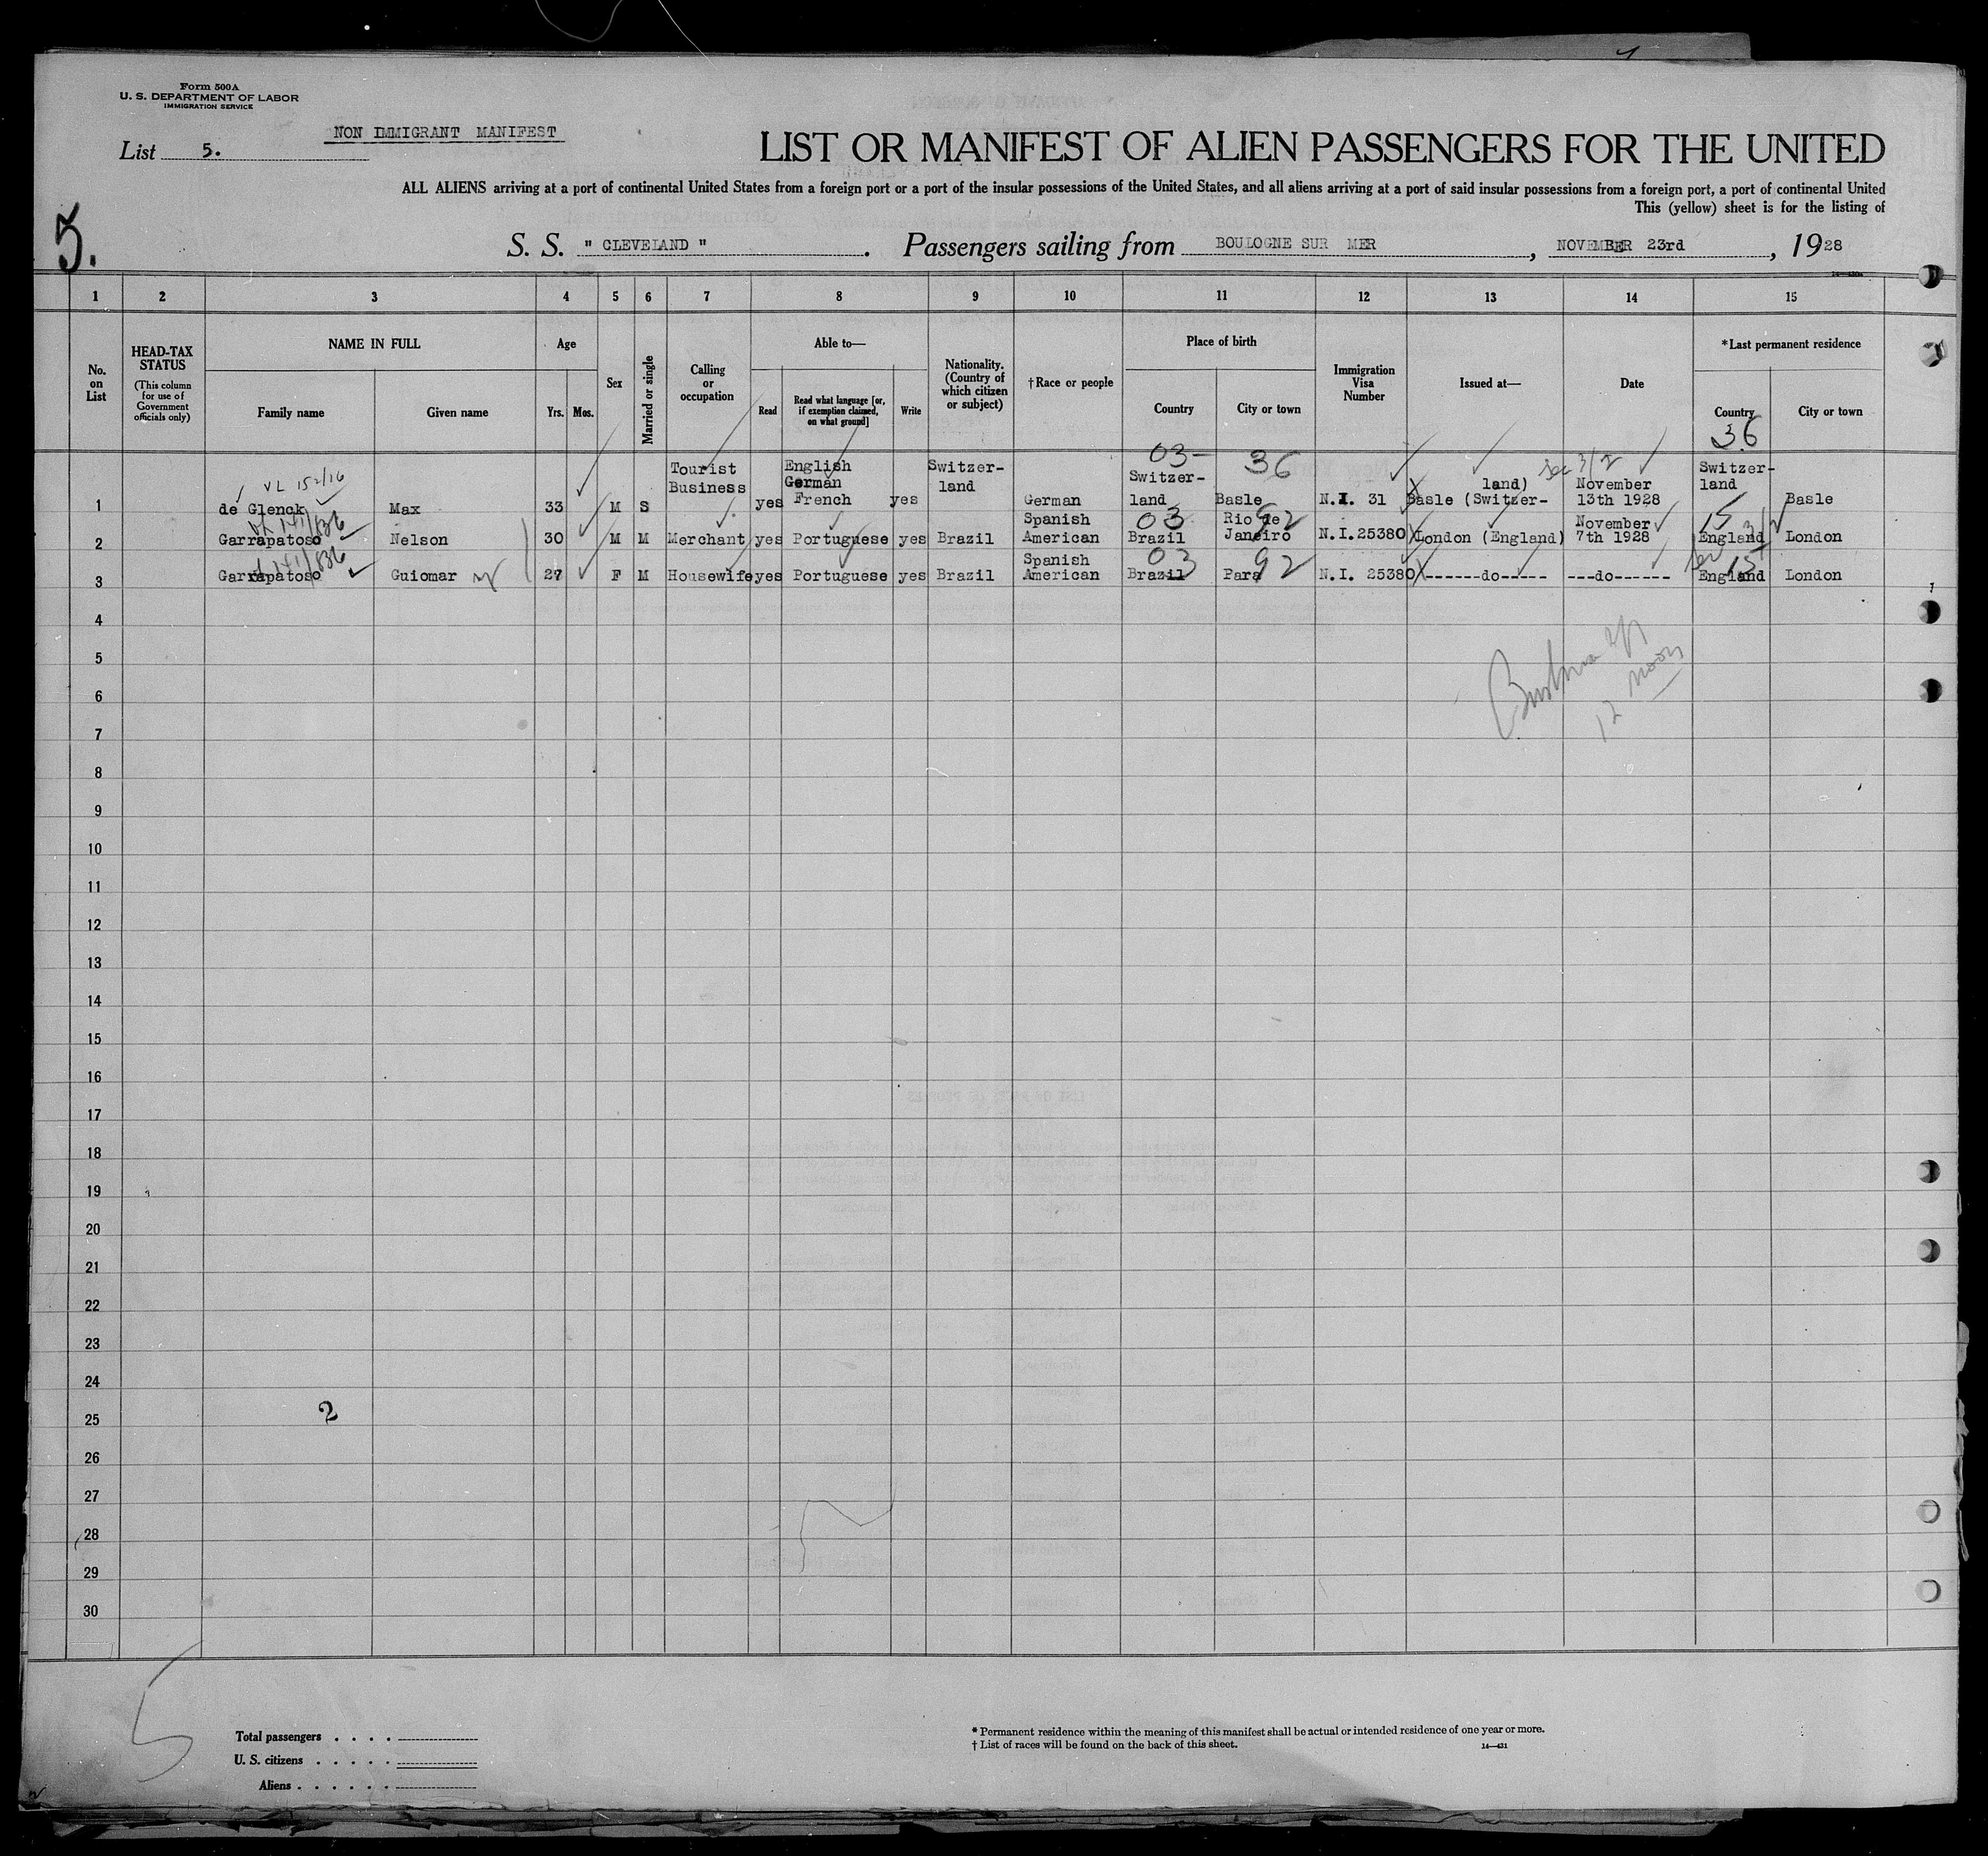 Form 500A
U. S. DEPARTMENT OF LABOR
IMMIGRATION SERVICE
NON IMMIGRANT MANIFEST
List 5.
LIST OR MANIFEST OF ALIEN PASSENGERS FOR THE UNITED
ALL ALIENS arriving at a port of continental United States from a foreign port or a port of the insular possessions of the United States, and all aliens arriving at a port of said insular possessions from a foreign port, a port of continental United
This (yellow) sheet is for the listing of
5.
S. S. " CLEVELAND ". Passengers sailing from BOULOGNE SUR MER, NOVEMBER 23rd, 1928
1 2 3 4 5 6 7 8 9 10 11 12 13 14 15
No. on List
HEAD-TAX STATUS
(This column for use of Government officials only)
NAME IN FULL
Family name
Given name
Age
Yrs.
Mos.
Sex
Married or single
Calling or occupation
Able to—
Read
Read what language [or, if exemption claimed, on what ground]
Write
Nationality. (Country of which citizen or subject)
†Race or people
Place of birth
Country
City or town
Immigration Visa Number
Issued at—
Date
*Last permanent residence
Country
City or town
36
VL 152/16
03- 36
1 de Glenck Max 33 M S Tourist Business yes English German French yes Switzer-land German Switzer-land Basle N.I. 31 Basle (Switzer-land) November 13th 1928 Switzer-land Basle
03 92 15
2 Garrapatoso Nelson 30 M M Merchant yes Portuguese yes Brazil Spanish American Brazil Rio de Janeiro N.I.25380 London (England) November 7th 1928 England London
03 92 15
3 Garrapatoso Guiomar 27 F M Housewife yes Portuguese yes Brazil Spanish American Brazil Para N.I. 25380 ------do----- ---do------ England London
4
5
6
12 noon
7
8
9
10
11
12
13
14
15
16
17
18
19
20
21
22
23
24
2
25
26
27
28
29
30
5
Total passengers . . . .
U. S. citizens . . . . .
Aliens . . . . . .
* Permanent residence within the meaning of this manifest shall be actual or intended residence of one year or more.
† List of races will be found on the back of this sheet.
14—431